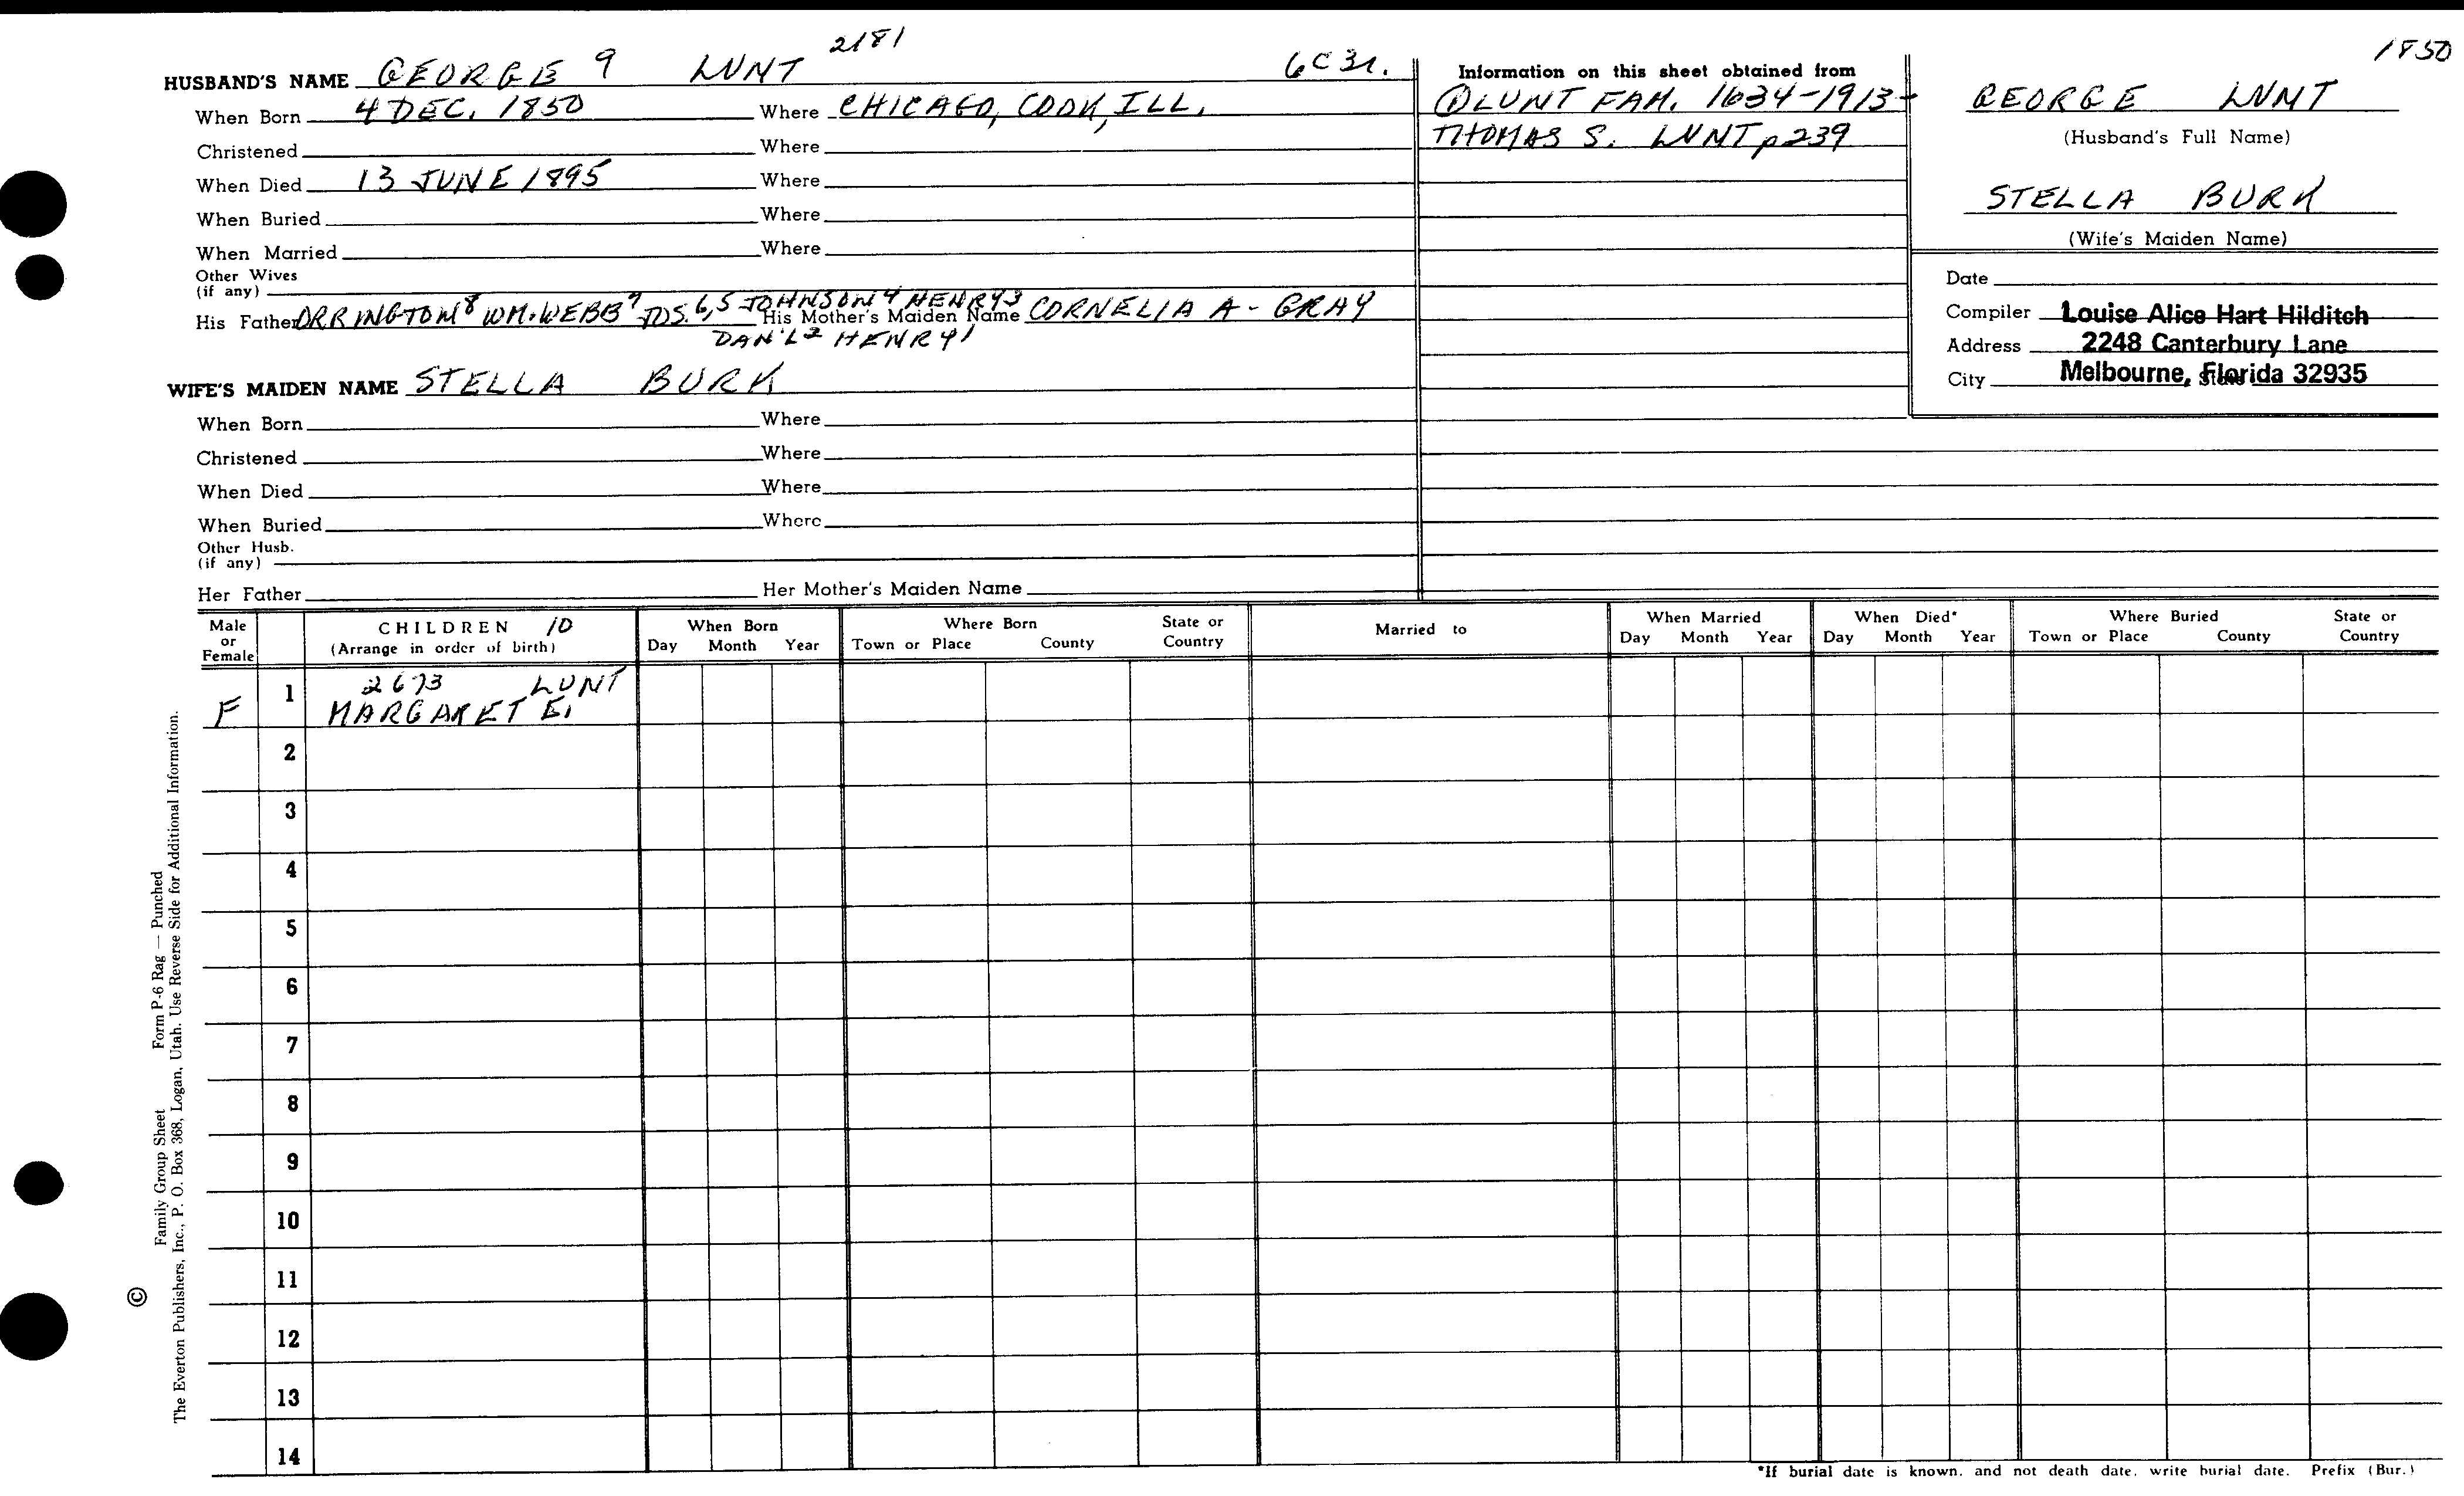 2181
1850
HUSBAND'S NAME GEORGE 9 LUNT 6C3r.
When Born 4 DEC. 1850 Where CHICAGO, COOK, ILL.
Christened Where
When Died 13 JUNE 1895 Where
When Buried Where
When Married Where
Other Wives
(if any)
His Father ORRINGTON 8 WM. WEBB 7 JOS. 6,5 JOHNSON 4 HENRY 3 His Mother's Maiden Name CORNELIA A - GRAY
DAN'L 2 HENRY 1
Information on this sheet obtained from
① LUNT FAM. 1634-1913-
THOMAS S. LUNT p239
GEORGE LUNT
(Husband's Full Name)
STELLA BURK
(Wife's Maiden Name)
Date
Compiler Louise Alice Hart Hilditch
Address 2248 Canterbury Lane
City Melbourne, Florida 32935 State
WIFE'S MAIDEN NAME STELLA BURK
When Born Where
Christened Where
When Died Where
When Buried Where
Other Husb.
(if any)
Her Father Her Mother's Maiden Name
Male or Female CHILDREN 10 (Arrange in order of birth) When Born Day Month Year Where Born Town or Place County State or Country Married to When Married Day Month Year When Died* Day Month Year Where Buried Town or Place County State or Country
1 2673 LUNT
F MARGARET E.
2
3
4
5
6
7
8
9
10
11
12
13
14
*If burial date is known, and not death date, write burial date. Prefix (Bur.)
Family Group Sheet Form P-6 Rag — Punched
The Everton Publishers, Inc., P. O. Box 368, Logan, Utah. Use Reverse Side for Additional Information.
©